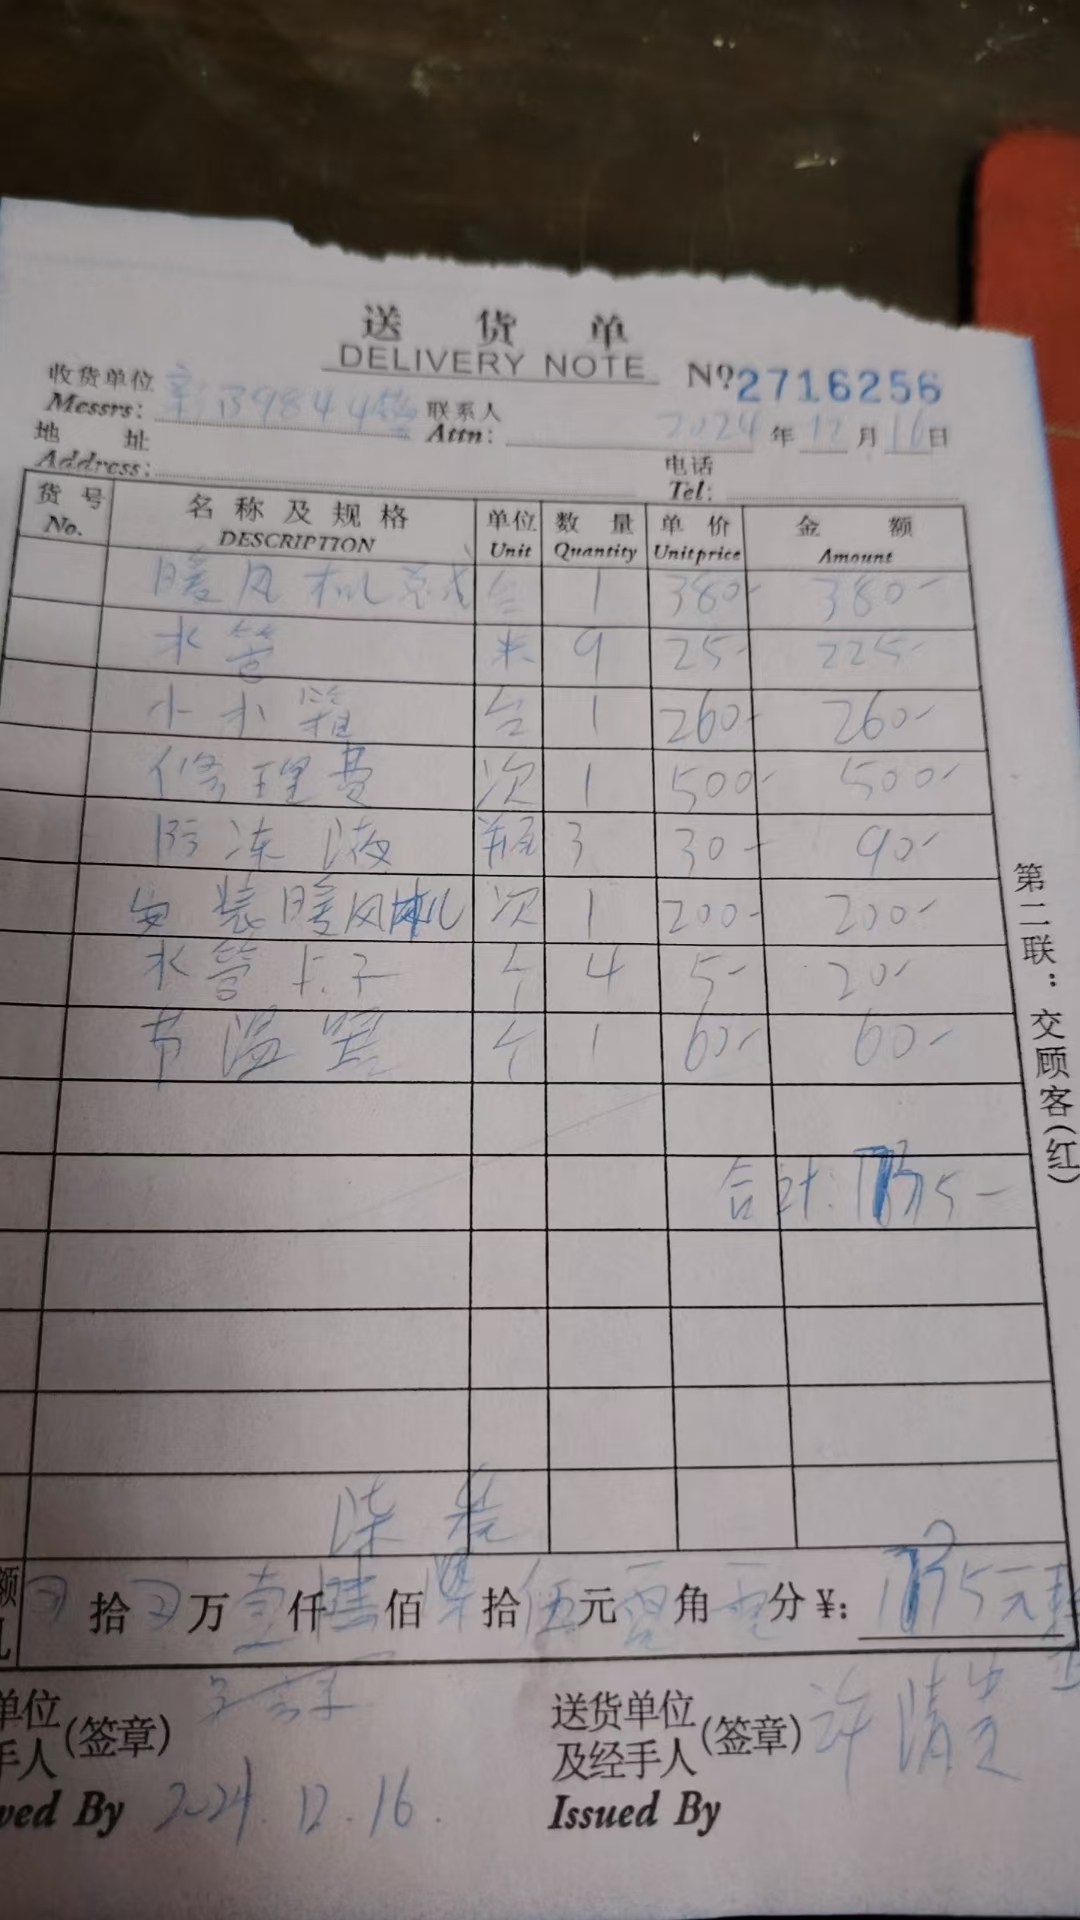 送 货 单
DELIVERY NOTE
№2716256
收货单位
Messrs: 新B9844
联系人
Attn:
2024 年 12 月 16 日
地 址
Address:
电话
Tel:
货号 名称及规格 单位 数量 单价 金额
No. DESCRIPTION Unit Quantity Unitprice Amount
暖风机总成 台 1 380- 380-
水管 米 9 25- 225-
小水箱 台 1 260- 260-
修理费 次 1 500- 500-
防冻液 瓶 3 30- 90-
安装暖风机 次 1 200- 200-
水管卡子 个 4 5- 20-
节温器 个 1 60- 60-
合计: 1735-
第二联:交顾客(红)
柒 叁
额 拾 万 壹 仟 佰 拾 伍 元 零 角 零 分 ¥: 1735元整
单位
手人 (签章)
ved By 2024.12.16.
送货单位
及经手人 (签章) 许
Issued By